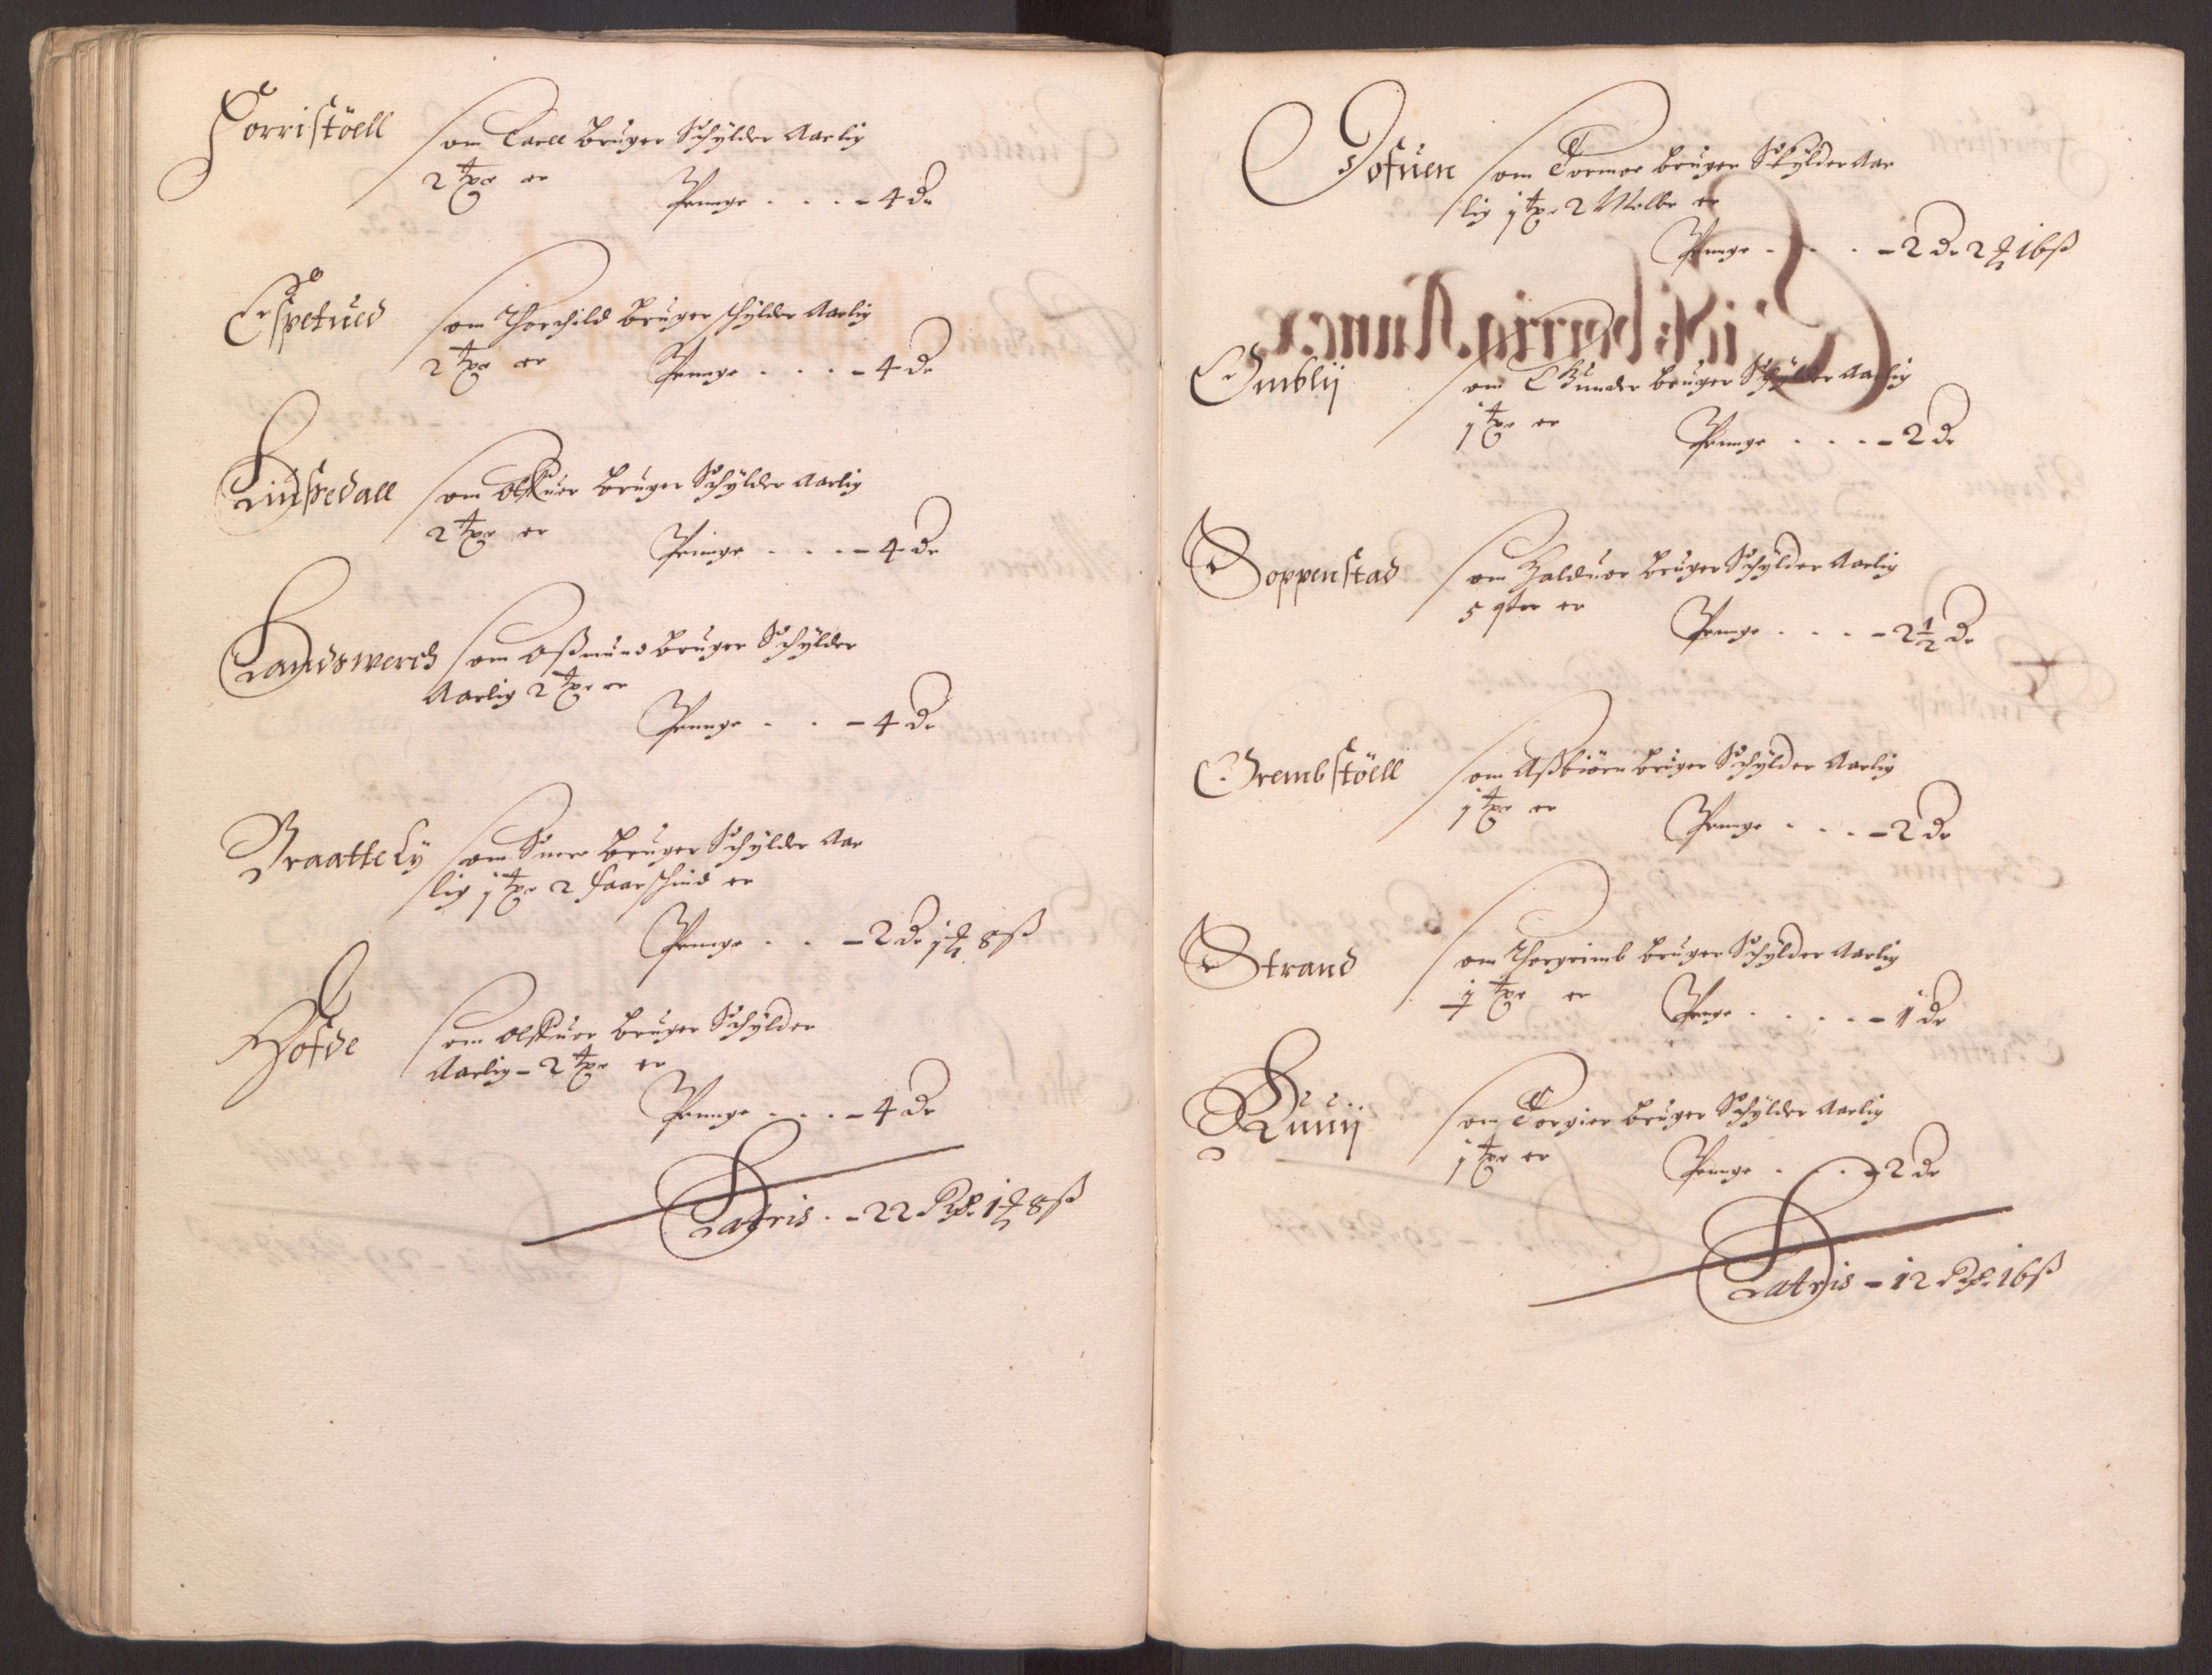 Forristöell som Carll bruger Schylder Aarlig
2 tpr er
Penge . . . - 4 Dr
Espetued som Thorchild bruger schylder Aarlig
2 tpr er Penge . . . - 4 Dr
Linssedall som Olffuer bruger Schylder Aarlig
2 tpr er
Penge . . . - 4 Dr
Landswerch som Aßmund bruger Schylder
Aarlig 2 tpr er
Penge . . - 4 Dr
Braattely som bruger Schylder Aar
lig 1 tpr 2 faarschind er
Penge . . - 2 Dr 1 ¥ 8 ß
Hofde som Olffuer bruger Schylder
Aarlig - 2 tpr er
Penge . . . - 4 Dr
Latris . - 22 Rdr. 1 ¥ 8 ß
Gofuen som Tormoe bruger Schylder Aar
lig 1 tpr 2 er
Penge . . . - 2 Dr 2 ¥ 16 ß
Omblij som Gunder bruger Schylder Aarlig
1 tpr er
Penge . . . - 2 Dr
Soppenstad som Halduor bruger Schylder Aarlig
5 qter er
Penge . . . - 2 1/2 Dr
Grembstöell som Aßbiörn bruger Schylder Aarlig
1 tpr er
Penge . . . - 2 Dr
Strand som Thorgrimb bruger Schylder Aarlig
tpr er Penge . . . . - 1 Dr
Lunij som Torgier bruger Schylder Aarlig
1 tpr er
Penge . . . 2 Dr
Latris - 12 Rdr. 16 ß